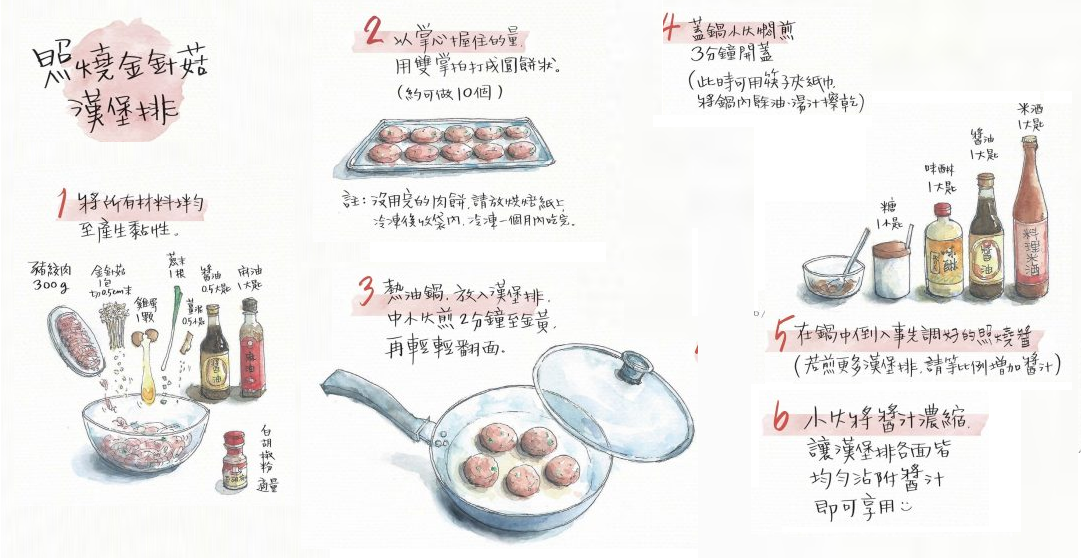 照燒金針菇
漢堡排
1 將所有材料拌勻
至產生黏性。
豬絞肉
300g
金針菇
1包
切0.5cm末
雞蛋
1顆
蔥末
1根
薑泥
0.5小匙
醬油
0.5大匙
麻油
1大匙
醬油
麻油
白胡椒粉
適量
2 以掌心握住的量,
用雙掌拍打成圓餅狀。
(約可做10個)
註:沒用完的肉餅,請放烘焙紙上,
冷凍後收袋內,冷凍一個月內吃完。
3 熱油鍋,放入漢堡排,
中小火煎2分鐘至金黃,
再輕輕翻面。
4 蓋鍋小火燜煎
3分鐘開蓋
(此時可用筷子夾紙巾,
將鍋內餘油、湯汁擦乾)
糖
1小匙
味醂
1大匙
醬油
1大匙
米酒
1大匙
味醂
醬油
料理米酒
5 在鍋中倒入事先調好的照燒醬
(若煎更多漢堡排,請等比例增加醬汁)
6 小火將醬汁濃縮,
讓漢堡排各面皆
均勻沾附醬汁
即可享用